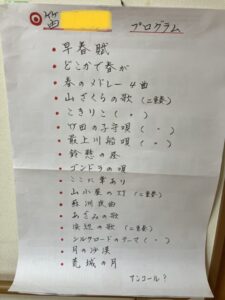 プログラム
早春賦
どこかで春が
春のメドレー 4曲
山ざくらの歌 (二重奏)
こきりこ ( 〃 )
竹田の子守唄 ( 〃 )
最上川船唄 ( 〃 )
鈴懸の径
ゴンドラの唄
ここに幸あり
山小屋の灯 (二重奏)
蘇州夜曲
あざみの歌
浜辺の歌 (二重奏)
シルクロードのテーマ ( 〃 )
月の沙漠
荒城の月
アンコール?